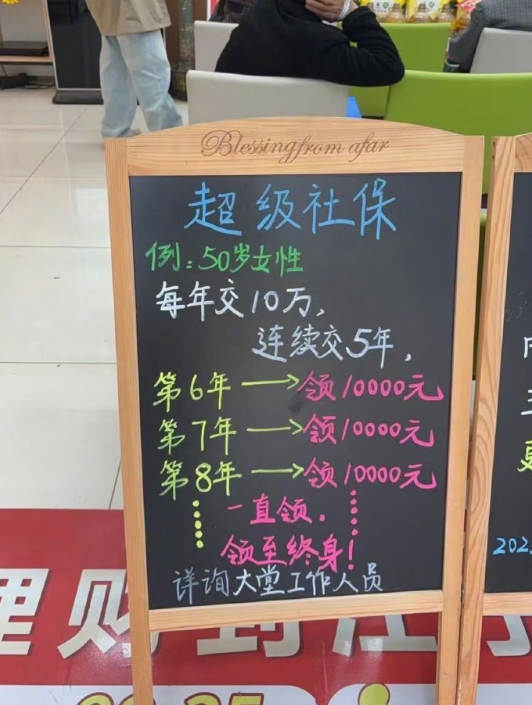 Blessing from afar
超级社保
例:50岁女性
每年交10万,
连续交5年,
第6年→领10000元
第7年→领10000元
第8年→领10000元
一直领.
领至终身!
详询大堂工作人员
202
理财到江